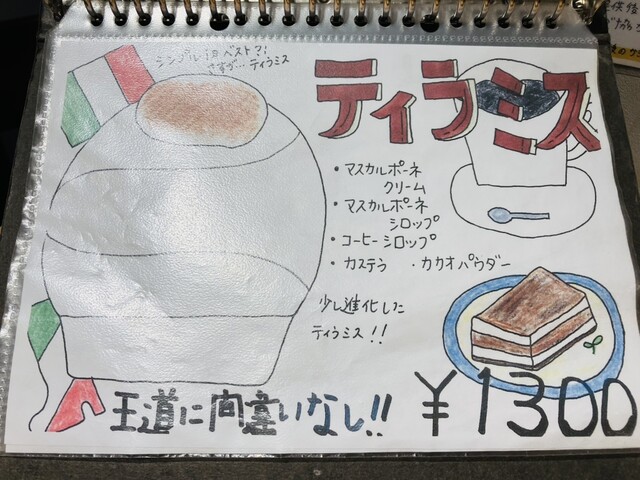 シンプル is ベスト?!
さすが…ティラミス
ティラミス
・マスカルポーネ
クリーム
・マスカルポーネ
シロップ
・コーヒーシロップ
・カステラ ・カカオパウダー
少し進化した
ティラミス!!
王道に間違いなし!!
¥1300